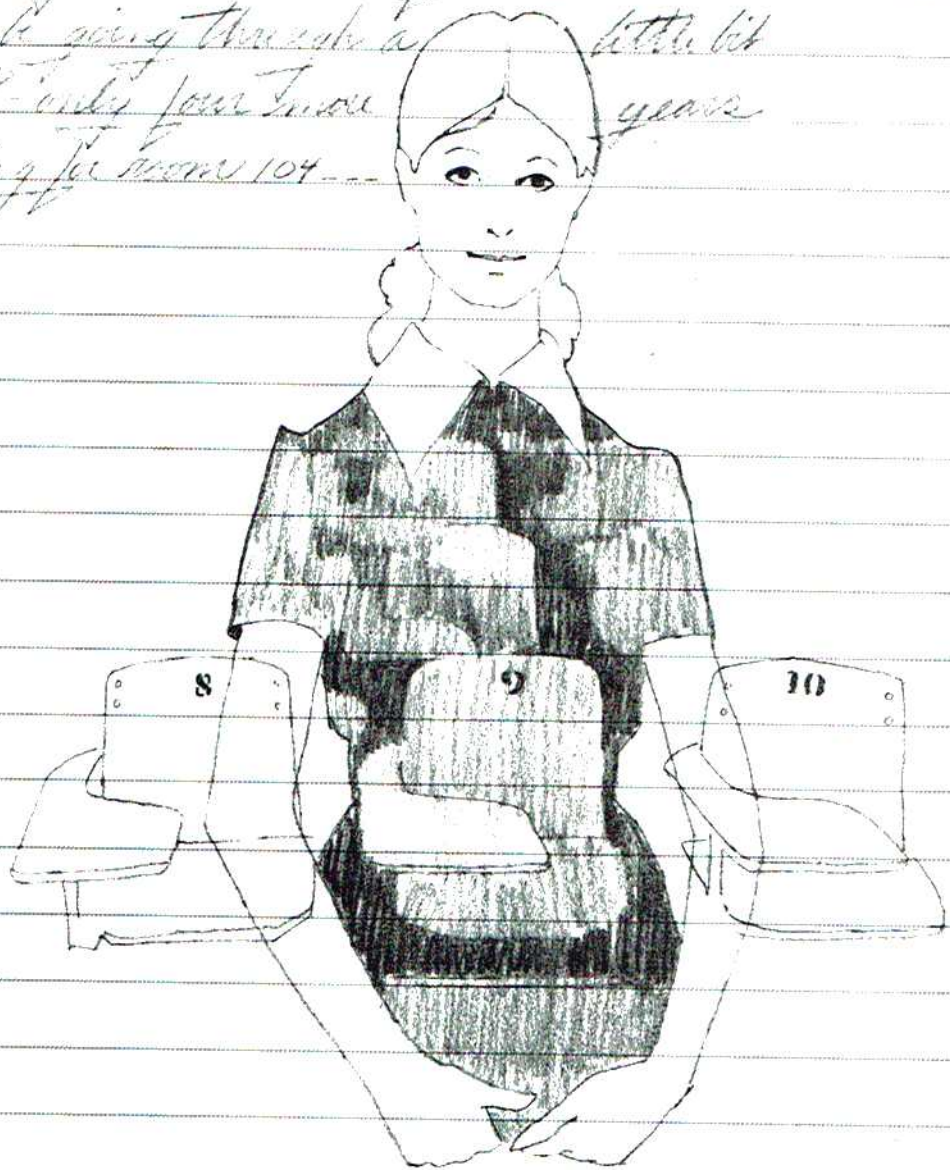 going through a little bit
only four more years
for room 104---
8 9 10